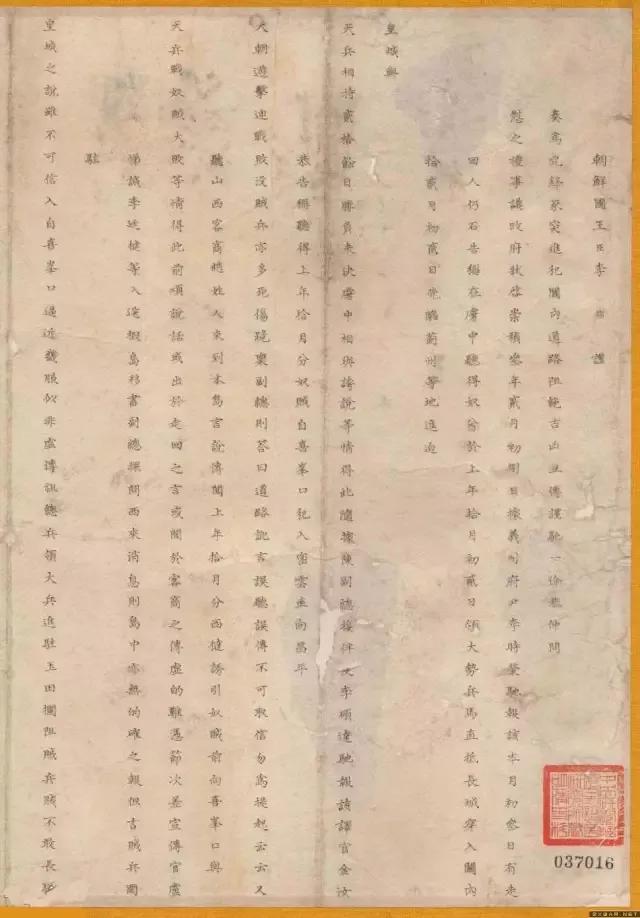 朝鮮國王臣李 謹
奏爲兇鋒豕突進犯關內道路阻絕吉凶互傳謹馳一价恭伸問
慰之禮事議政府狀啓崇禎參年貳月初 日據義州府尹李時英馳報該本月初參日有走
回人仍石告稱在虜中聽得奴酋於上年拾月初貳日領大勢兵馬直抵長城穿入關內
拾貳月初貳日先犯薊州等地進迫
皇城與
天兵相持貳拾餘日勝負未決虜中相與誇說等情得此隨據陳副總接伴使李碩達馳報該譯官金汝
恭告稱聽得上年拾月分奴賊自喜峯口犯入密雲直向昌平
天朝遊擊迎戰敗沒賊兵亦多死傷 稟副總則答曰道路訛言誤聽誤傳不可取信勿爲提起云云又
聽山西客商 姓人來到本島言說傳聞上年拾月分西㺚誘引奴賊前向喜峯口與
天兵戰奴賊大敗等情得此前項說話或出於走回之言或聞於客商之傳虛的難憑節次差宣傳官虛
誠李廷健等入送椵島移書副總探問西來消息則島中亦無的確之報但言賊兵圍
駐
皇城之說雖不可信入自喜峯口逼近畿 似非虛傳訊 兵領大兵進駐玉田攔阻賊兵賊不敢長驅
037016